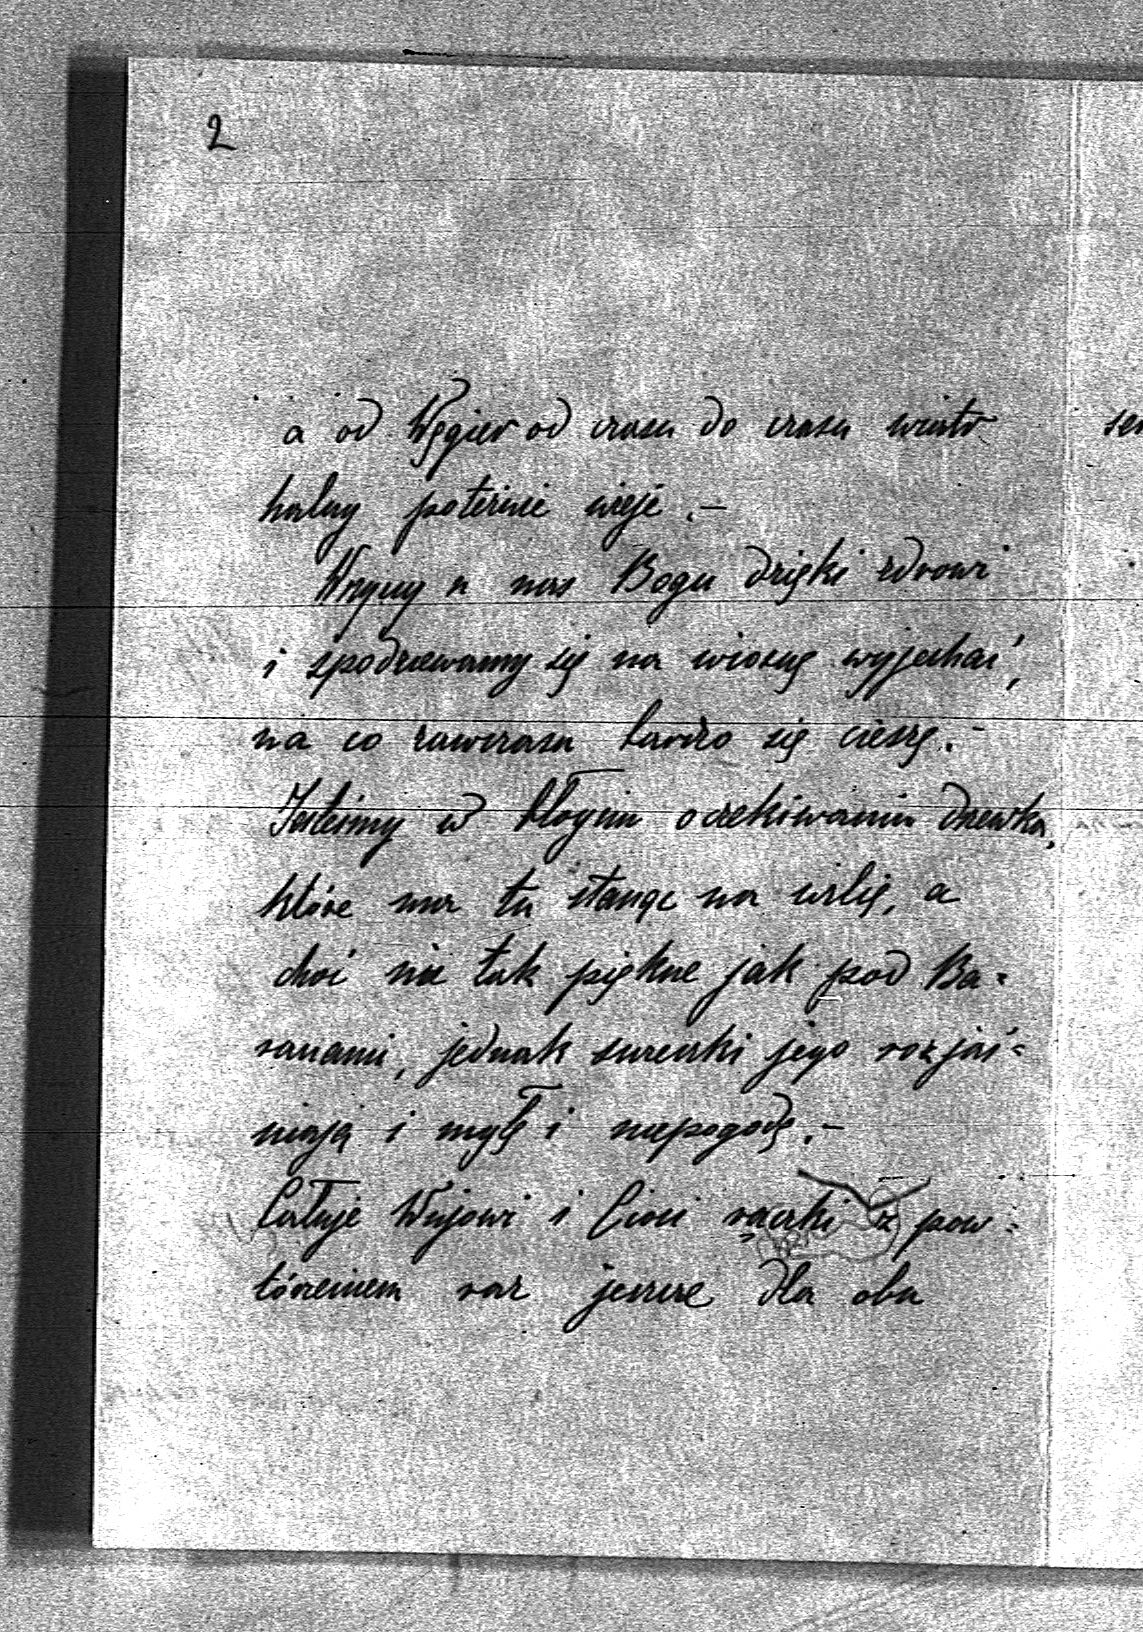 2
a od Węgier od czasu do czasu wiatr
halny potężnie wieje.—
Wszyscy u nas Bogu dzięki zdrowi
i spodziewamy się na wiosnę wyjechać,
na co zawczasu bardzo się cieszę.—
Jesteśmy w błogim oczekiwaniu drzewka,
które ma tu stanąć na wilię, a
choć nie tak piękne jak pod Ba=
ranami, jednak świeczki jego rozjaś=
niają i mgłę i niepogodę.—
Całuję Wujowi i Cioci rączki z pow=
tórzeniem raz jeszcze dla obu